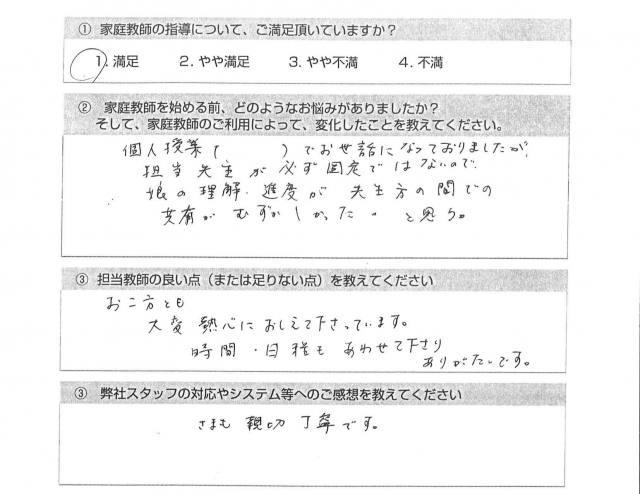 ① 家庭教師の指導について、ご満足頂いていますか?
1. 満足 2. やや満足 3. やや不満 4. 不満
② 家庭教師を始める前、どのようなお悩みがありましたか?
そして、家庭教師のご利用によって、変化したことを教えてください。
個人授業( )でお世話になっておりましたが、
担当先生が必ず固定ではないので、
娘の理解・進度が先生方の間での
共有がむずかしかった。と思う。
③ 担当教師の良い点(または足りない点)を教えてください
お二方とも
大変熱心におしえて下さっています。
時間・日程もあわせて下さり
ありがたいです。
③ 弊社スタッフの対応やシステム等へのご感想を教えてください
さまも 親切丁寧です。